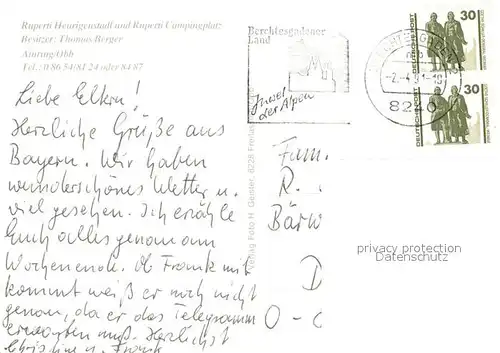 Ruperti Heurigenstadl und Ruperti Campingplatz
Besitzer: Thomas Berger
Ainring/Obb
Tel.: 0 86 54/81 24 oder 84 87
Liebe Eltern!
Herzliche Grüße aus
Bayern. Wir haben
wunderschönes Wetter u.
viel gesehen. Ich erzähle
Euch alles genau am
Wochenende. Ob Frank mit
kommt weiß er noch nicht
genau, da er das Telegramm
erwarten muß. Herzlichst
Christine u. Frank
Verlag Foto H. Geister, 8228 Freilas
Berchtesgadener
Land
Juwel
der Alpen
8240
DEUTSCHE POST
30
DEUTSCHE POST
30
Fam.
R.
Bärw
D
O - 
privacy protection
Datenschutz